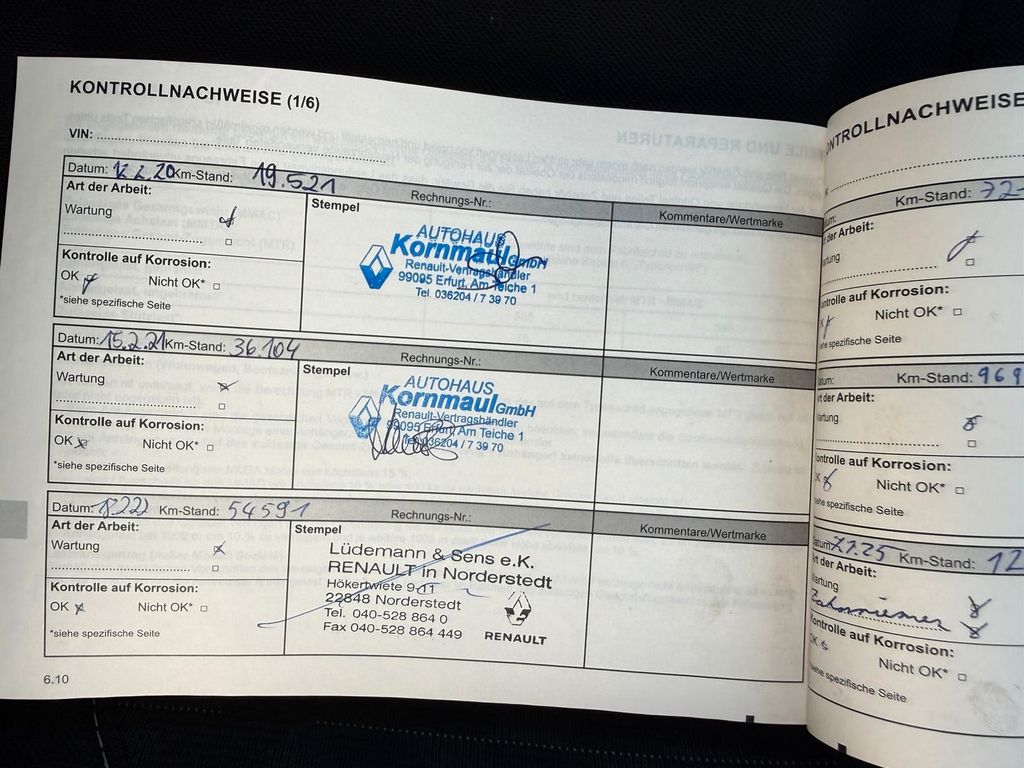 KONTROLLNACHWEISE (1/6)
VIN:
Datum: 12.2.20 Km-Stand: 19.521
Art der Arbeit:
Wartung
Kontrolle auf Korrosion:
OK Nicht OK*
*siehe spezifische Seite
Rechnungs-Nr.:
Stempel
AUTOHAUS
Kornmaul GmbH
Renault-Vertragshändler
99095 Erfurt, Am Teiche 1
Tel. 036204 / 7 39 70
Kommentare/Wertmarke
Datum: 15.2.21 Km-Stand: 36.104
Art der Arbeit:
Wartung
Kontrolle auf Korrosion:
OK Nicht OK*
*siehe spezifische Seite
Rechnungs-Nr.:
Stempel
AUTOHAUS
Kornmaul GmbH
Renault-Vertragshändler
99095 Erfurt, Am Teiche 1
Tel. 036204 / 7 39 70
Kommentare/Wertmarke
Datum: Km-Stand: 54591
Art der Arbeit:
Wartung
Kontrolle auf Korrosion:
OK Nicht OK*
*siehe spezifische Seite
Rechnungs-Nr.:
Stempel
Lüdemann & Sens e.K.
RENAULT in Norderstedt
Hökertwiete 9-11
22848 Norderstedt
Tel. 040-528 864 0
Fax 040-528 864 449
RENAULT
Kommentare/Wertmarke
6.10
ONTROLLNACHWEISE
Km-Stand: 72
der Arbeit:
artung
ontrolle auf Korrosion:
Nicht OK*
siehe spezifische Seite
atum: Km-Stand: 969
t der Arbeit:
artung
ontrolle auf Korrosion:
Nicht OK*
siehe spezifische Seite
Datum Km-Stand: 12
t der Arbeit:
artung
Zahnriemen
ontrolle auf Korrosion:
Nicht OK*
siehe spezifische Seite